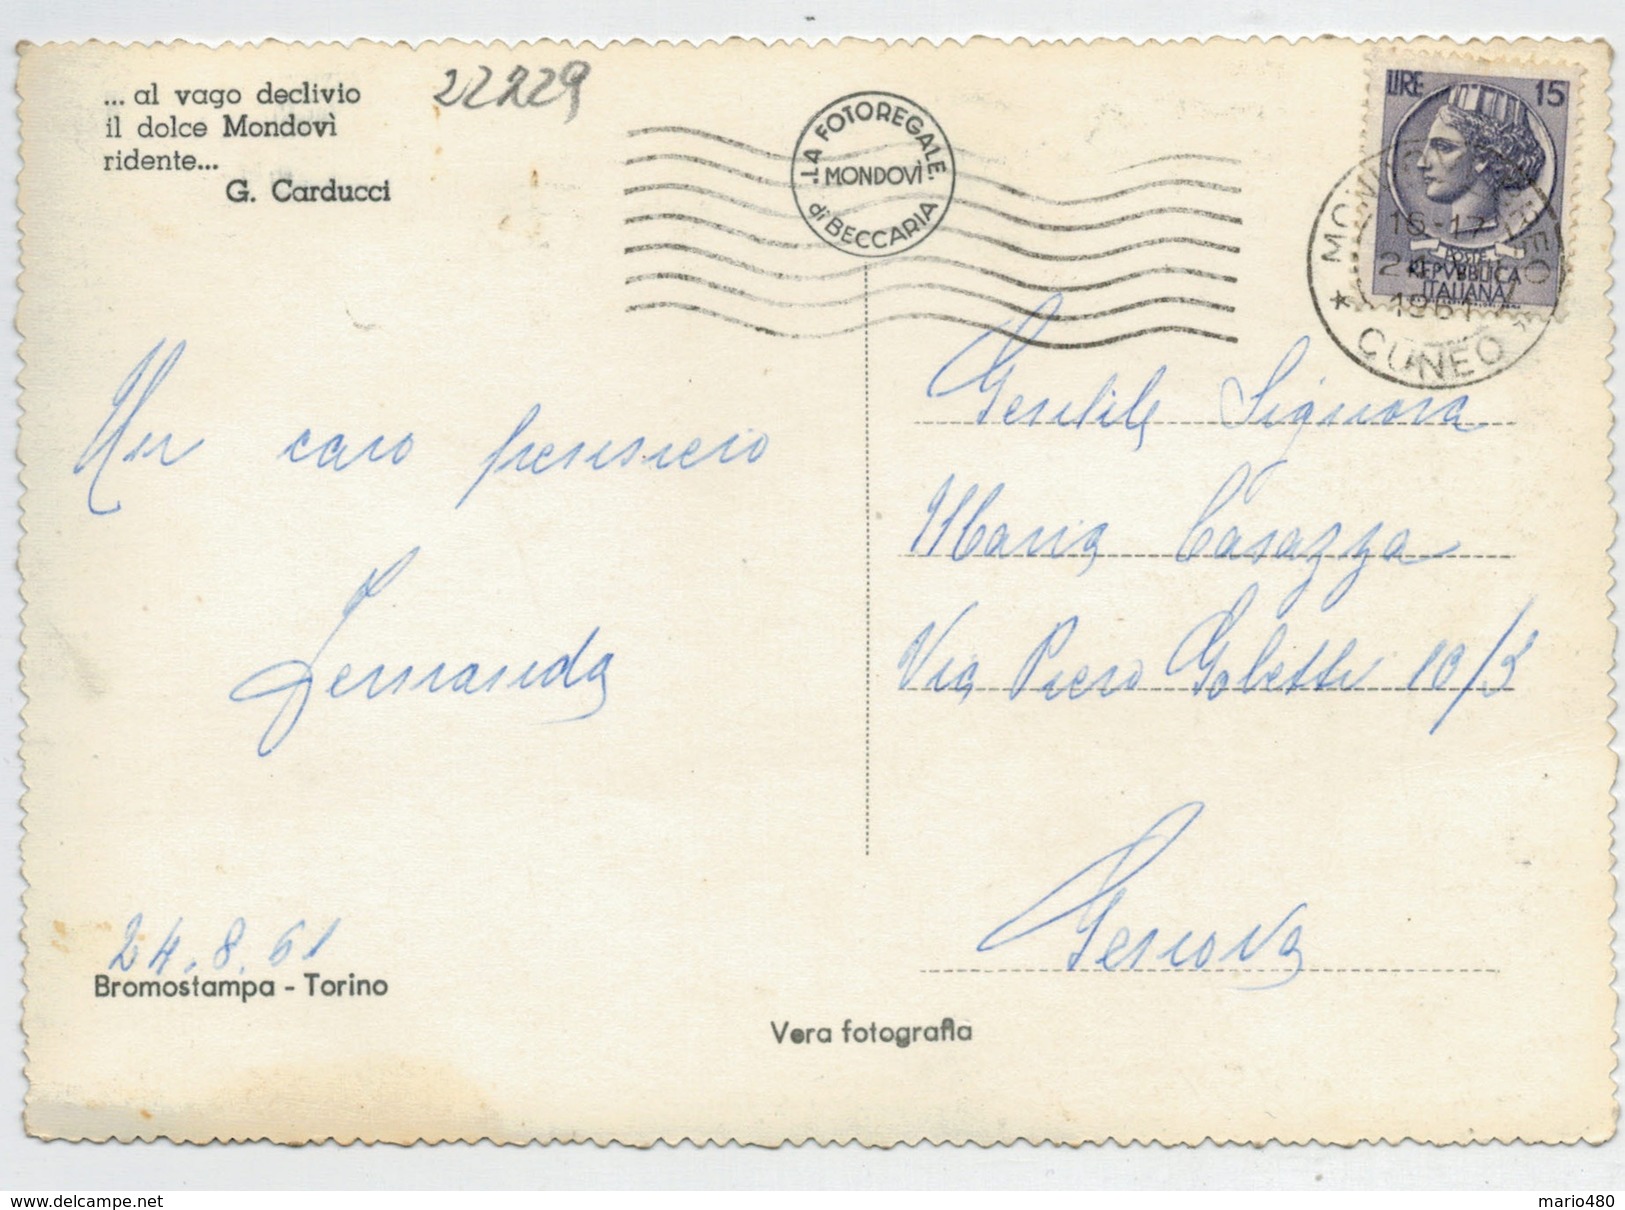 ... al vago declivio
il dolce Mondovì
ridente...
G. Carducci
22229
LA FOTOREGALE
MONDOVÌ
di BECCARIA
LIRE 15
POSTE
REPVBBLICA
ITALIANA
16-17
1961
CUNEO
Un caro pensiero
Fernanda
24.8.61
Bromostampa - Torino
Gentile Signora
Maria Casazza
Via Piero Gobetti 10/3
Genova
Vera fotografia
www.delcampe.net
mario480